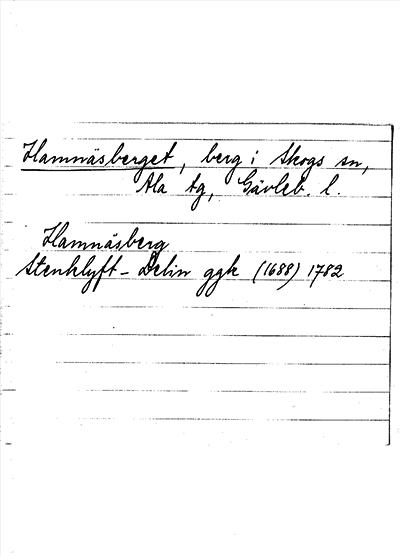 Hamnäsberget, berg i Skogs sn,
Ala tg, Gävleb. l.
Hamnäsberg
Stenklyft - Delin ggk (1688) 1782